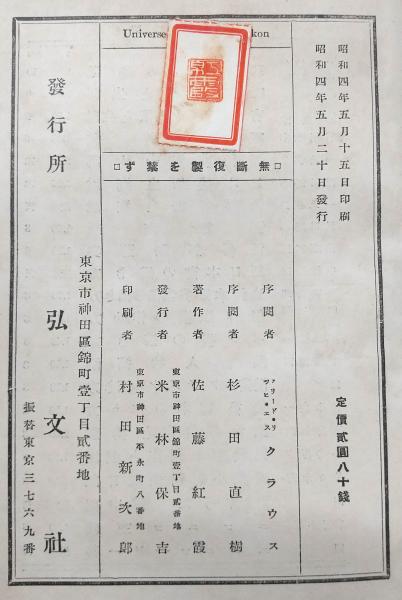 昭和四年五月十五日印刷
昭和四年五月二十日發行
定價貳圓八十錢
Universe
kon
□無斷復製を禁ず□
序閲者 フリードリツヒ・エス クラウス
序閲者 杉田直樹
著作者 佐藤紅霞
東京市神田區錦町壹丁目貳番地
發行者 米林保吉
東京市神田區松永町八番地
印刷者 村田新次郎
發行所
東京市神田區錦町壹丁目貳番地
弘文社
振替東京三七六九番